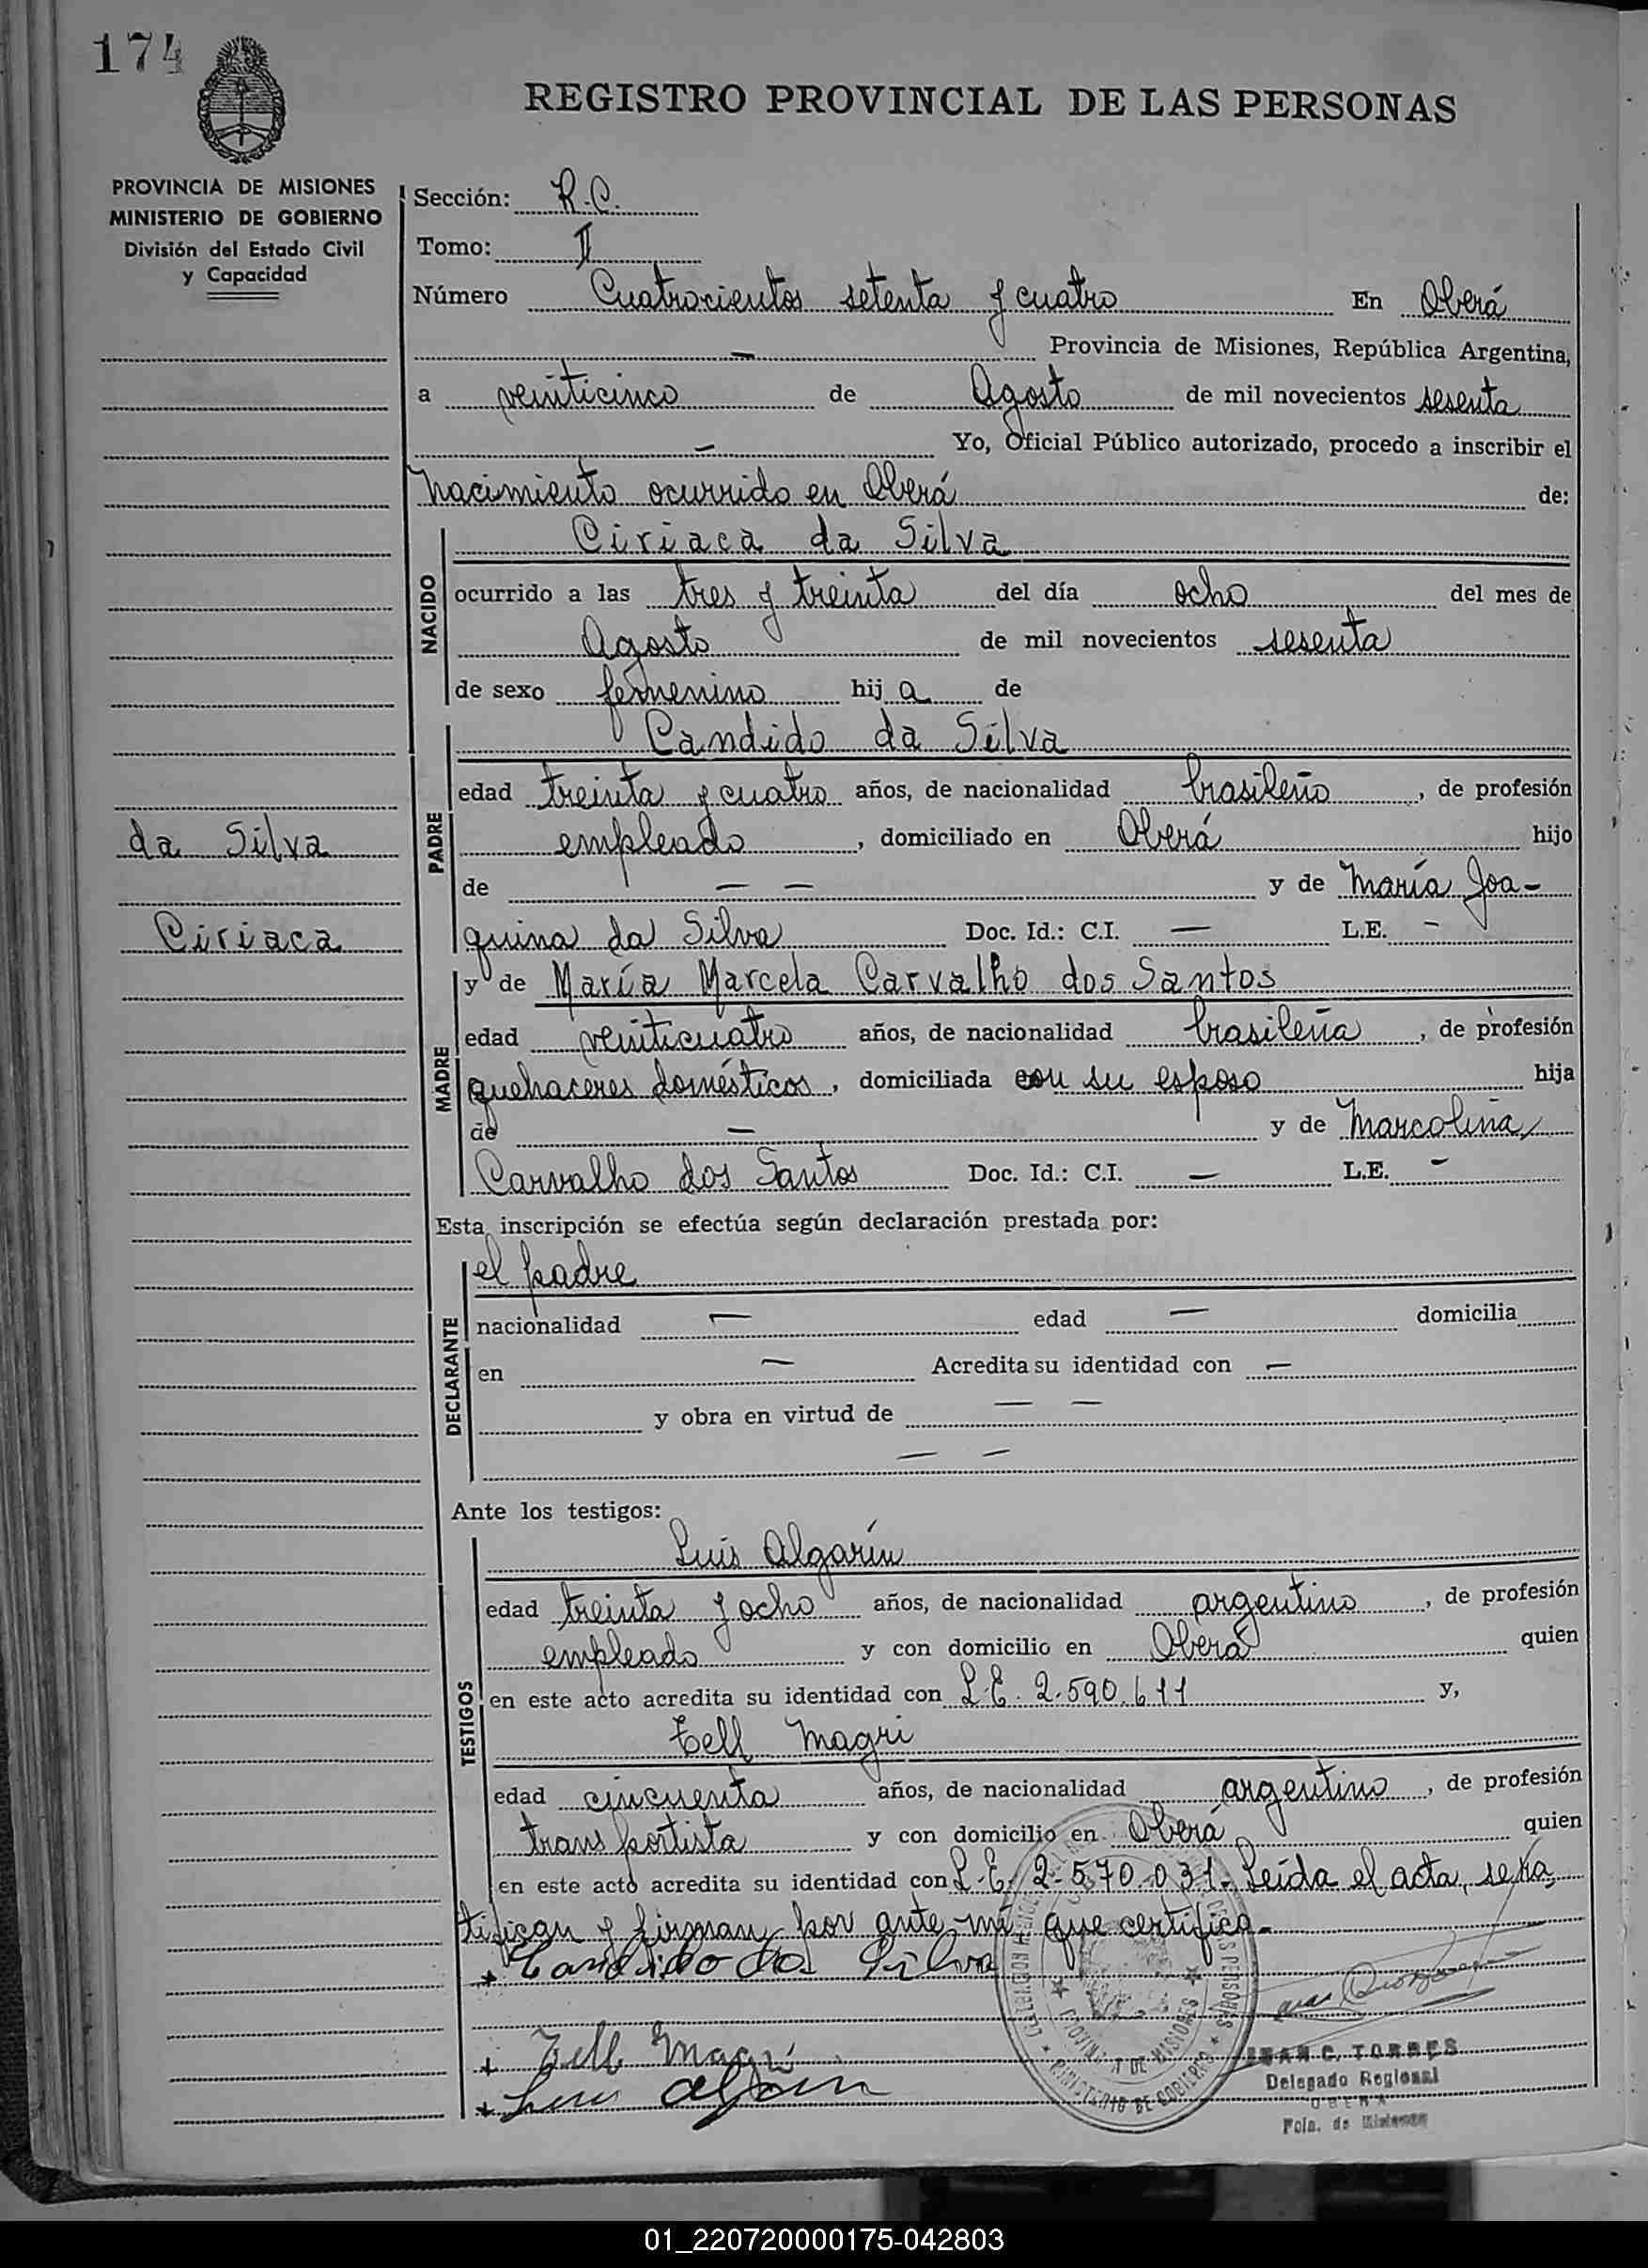 174
REGISTRO PROVINCIAL DE LAS PERSONAS
PROVINCIA DE MISIONES
MINISTERIO DE GOBIERNO
División del Estado Civil
y Capacidad
Sección: R.C.
Tomo: II
Número Cuatrocientos setenta y cuatro En Oberá
— Provincia de Misiones, República Argentina,
a veinticinco de Agosto de mil novecientos sesenta
— Yo, Oficial Público autorizado, procedo a inscribir el
nacimiento ocurrido en Oberá de:
NACIDO
Ciriaca da Silva
ocurrido a las tres y treinta del día ocho del mes de
Agosto de mil novecientos sesenta
de sexo femenino hija de
PADRE
Candido da Silva
edad treinta y cuatro años, de nacionalidad brasileño, de profesión
empleado, domiciliado en Oberá hijo
de — — y de María Joa-
quina da Silva Doc. Id.: C.I. — L.E. -
da Silva
Ciriaca
MADRE
y de María Marcela Carvalho dos Santos
edad veinticuatro años, de nacionalidad brasileña, de profesión
quehaceres domésticos, domiciliada con su esposo hija
de — y de Marcolina
Carvalho dos Santos Doc. Id.: C.I. — L.E. -
Esta inscripción se efectúa según declaración prestada por:
DECLARANTE
el padre
nacionalidad — edad — domicilia
en — Acredita su identidad con —
y obra en virtud de — —
— —
Ante los testigos:
TESTIGOS
Luis Algarín
edad treinta y ocho años, de nacionalidad argentino, de profesión
empleado y con domicilio en Oberá quien
en este acto acredita su identidad con L.E. 2.590.611 y,
Tell Magri
edad cincuenta años, de nacionalidad argentino, de profesión
transportista y con domicilio en Oberá quien
en este acto acredita su identidad con L.E. 2.570.031. Leída el acta, se ra
tifican y firman por ante mí que certifico.
+ Candido da Silva
+ Tell Magri
+ Luis Algarin
PROVINCIA DE MISIONES
MINISTERIO DE GOBIERNO
JUAN C. TORRES
Delegado Regional
OBERA
Pcia. de Misiones
01_220720000175-042803